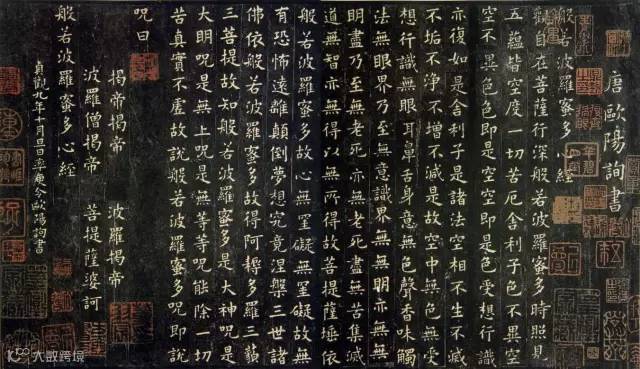 唐歐陽詢書
般若波羅蜜多心經
觀自在菩薩行深般若波羅蜜多時照見
五蘊皆空度一切苦厄舍利子色不異空
空不異色色即是空空即是色受想行識
亦復如是舍利子是諸法空相不生不滅
不垢不淨不增不減是故空中無色無受
想行識無眼耳鼻舌身意無色聲香味觸
法無眼界乃至無意識界無無明亦無無
明盡乃至無老死亦無老死盡無苦集滅
道無智亦無得以無所得故菩提薩埵依
般若波羅蜜多故心無罣礙無罣礙故無
有恐怖遠離顛倒夢想究竟涅槃三世諸
佛依般若波羅蜜多故得阿耨多羅三藐
三菩提故知般若波羅蜜多是大神呪是
大明呪是無上呪是無等等呪能除一切
苦真實不虛故說般若波羅蜜多呪即說
呪曰
揭帝揭帝 波羅揭帝
波羅僧揭帝 菩提薩婆訶
般若波羅蜜多心經
貞觀九年十月旦日率更令歐陽詢書
大数跨境